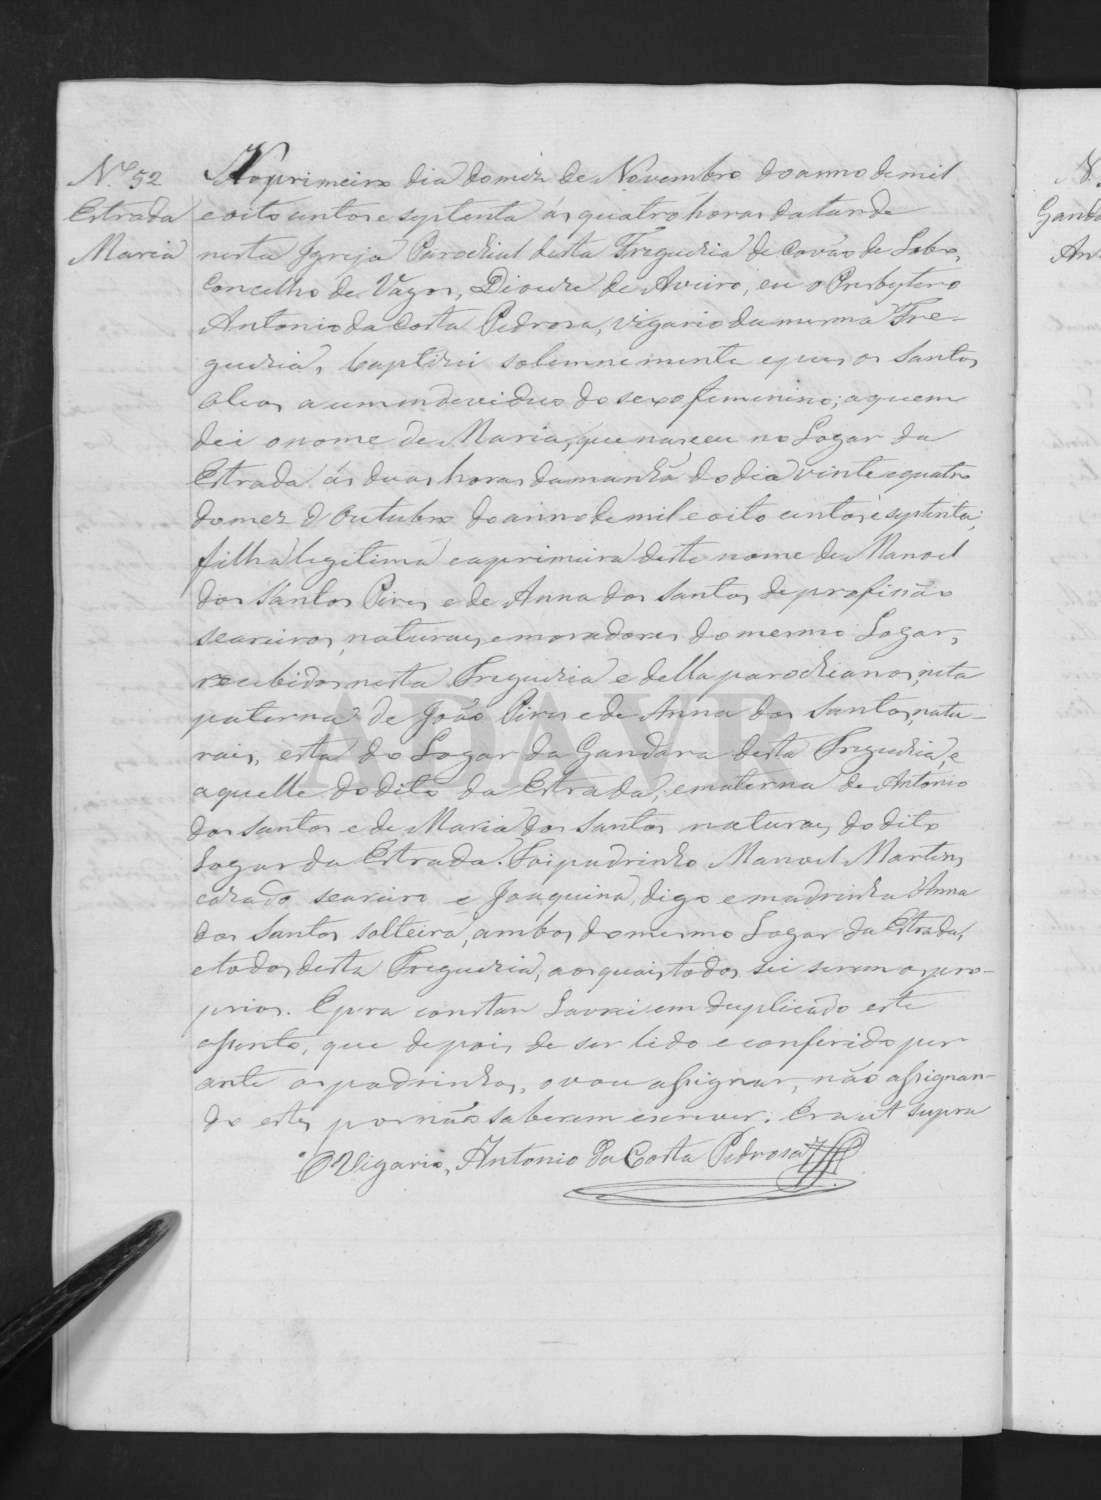 N.º 52
Estrada
Maria
No primeiro dia do mez de Novembro do anno de mil
e oito centos e septenta ás quatro horas da tarde
nesta Igreja Parochial desta Freguezia de Covão do Lobo,
Concelho de Vagos, Diocese de Aveiro, eu o Presbytero
Antonio da Costa Pedrosa, Vigario da mesma Fre-
guezia, baptizei solemnemente e puz os Santos
oleos a um individuo do sexo femenino; a quem
dei o nome de Maria, que nasceu no Logar da
Estrada ás duas horas da manhã do dia vinte e quatro
do mez d'Outubro do anno de mil e oito centos e septenta;
filha legitima e a primeira deste nome de Manoel
dos Santos Pires e de Anna dos Santos, de profissão
seareiros, naturaes e moradores do mesmo Logar,
recebidos nesta Freguezia e della parochianos, neta
paterna de João Pires e de Anna dos Santos, natu-
raes, esta do Logar da Gandara desta Freguezia, e
aquelle do dito da Estrada; e materna de Antonio
dos Santos e de Maria dos Santos naturaes do dito
Logar da Estrada. Foi padrinho Manoel Martins,
cazado seareiro e Joaquina, digo e madrinha Anna
dos Santos solteira, ambos do mesmo Logar da Estrada,
e todos desta Freguezia, aos quais todos sei serem os pro-
prios. E para constar Lavrei em duplicado este
assento, que depois de ser lido e conferido per-
ante os padrinhos, o vou assignar, não assignan-
do estes por não saberem escrever. Era ut supra
O Vigario, Antonio da Costa Pedrosa
ADAVR
Ganda